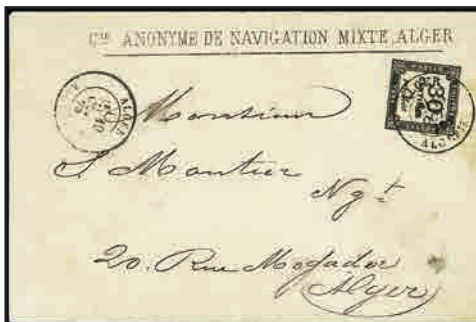 Cie ANONYME DE NAVIGATION MIXTE, ALGER
ALGER
30
ALGER
Monsieur
S. Montier
Ngt
20. Rue Mogador
Alger